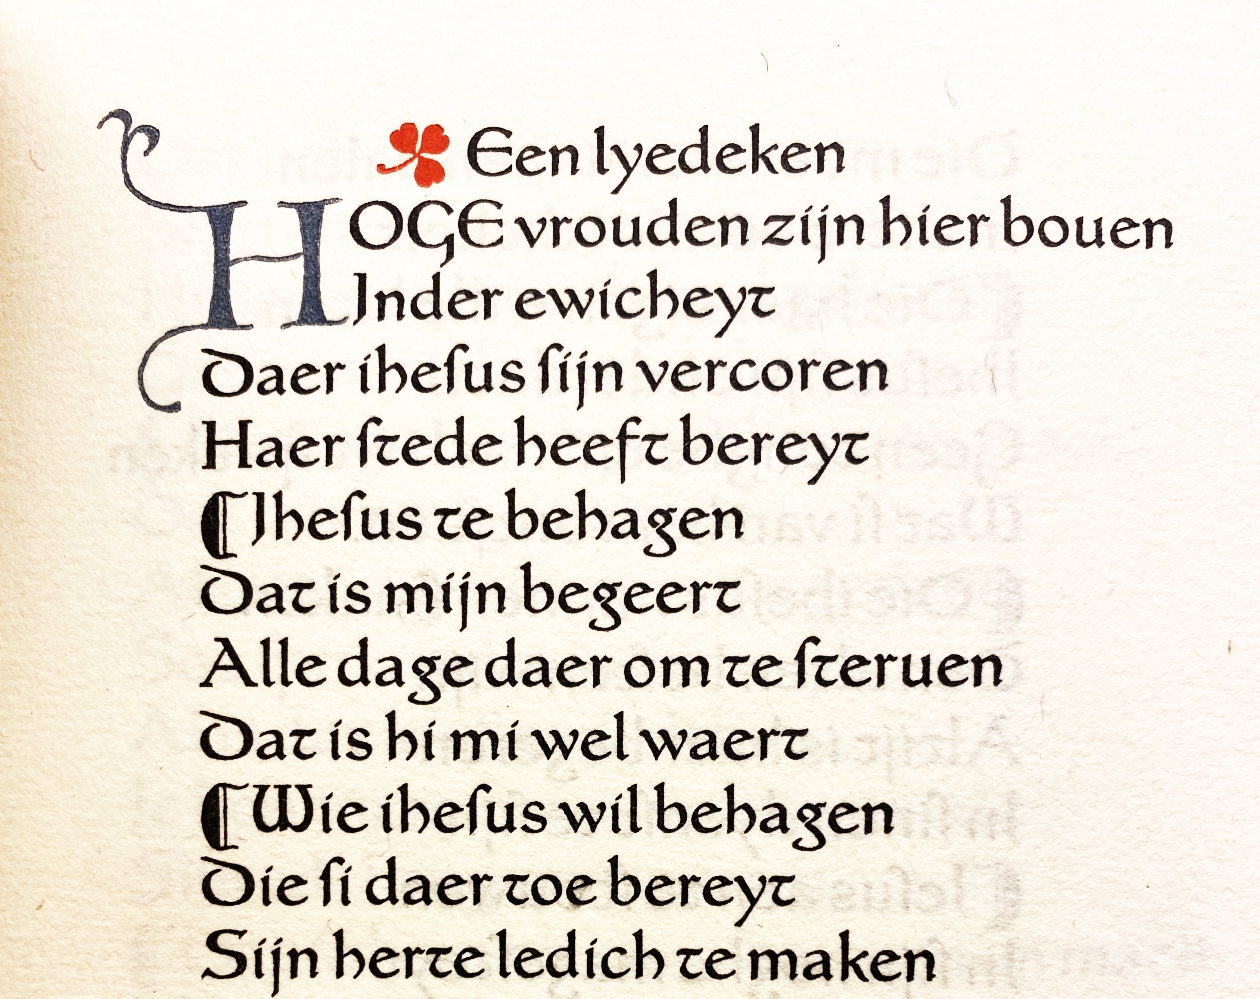 Een lyedeken
HOGE vrouden zijn hier bouen
Jnder ewicheyt
Daer iheſus ſijn vercoren
Haer ſtede heeft bereyt
¶Jheſus te behagen
Dat is mijn begeert
Alle dage daer om te ſteruen
Dat is hi mi wel waert
¶Wie iheſus wil behagen
Die ſi daer toe bereyt
Sijn herte ledich te maken